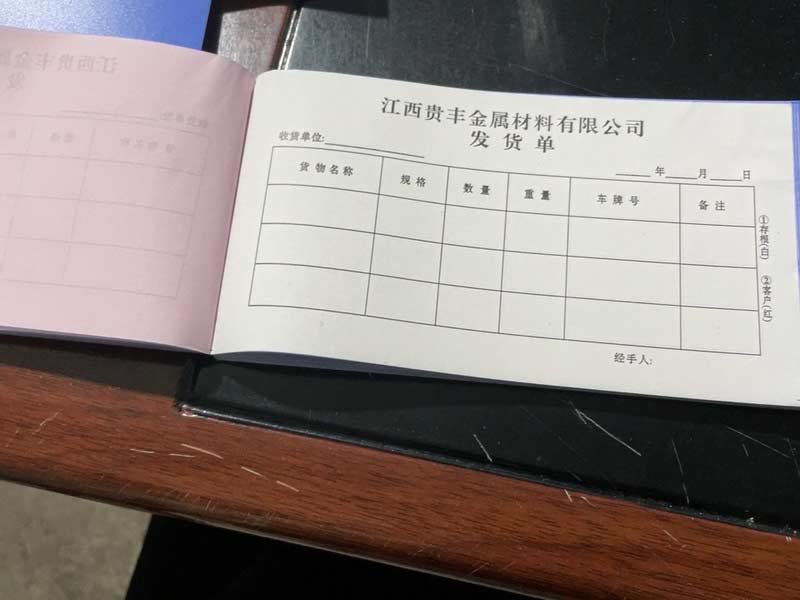 江西贵丰金属材料有限公司
发货单
收货单位:
年 月 日
货物名称 规格 数量 重量 车牌号 备注
①存根(白) ②客户(红)
经手人: